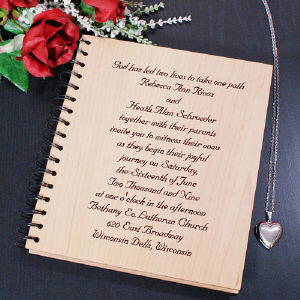 God has led two lives to take one path
Rebecca Ann Knox
and
Heath Alan Schroeder
together with their parents
invite you to witness their vows
as they begin their joyful
journey on Saturday,
the Sixteenth of June
Two Thousand and Nine
at one o'clock in the afternoon
Bethany Ev. Lutheran Church
620 East Broadway
Wisconsin Dells, Wisconsin